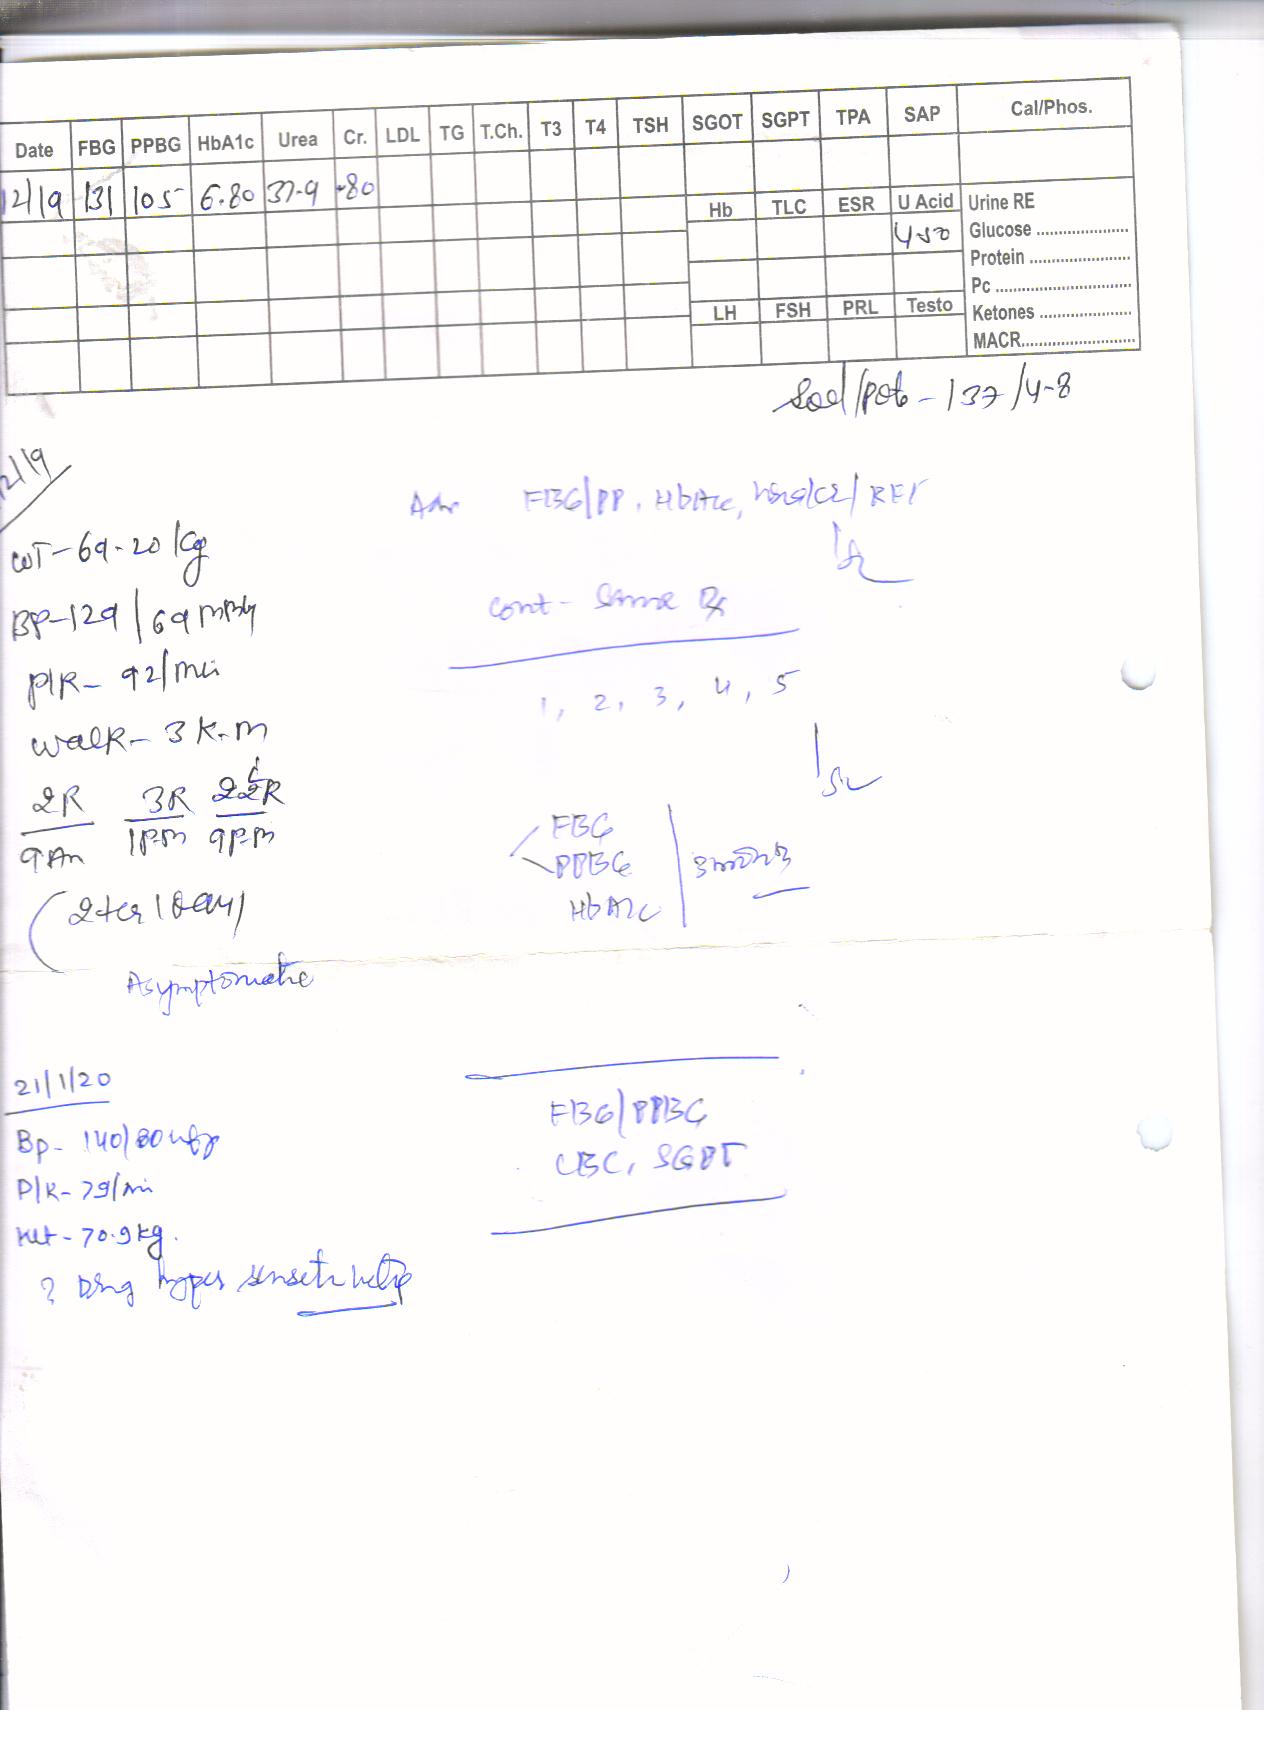 Date FBG PPBG HbA1c Urea Cr. LDL TG T.Ch. T3 T4 TSH SGOT SGPT TPA SAP Cal/Phos.
12/9 131 105 6.80 37.9 .80
Hb TLC ESR U Acid Urine RE
4.50 Glucose
Protein
Pc
LH FSH PRL Testo Ketones
MACR
Sod/Pot - 137/4.8
12/9
Adv FBG/PP, HbA1c,
WT- 69.20 kg
BP- 129/69 mmHg
cont - same Rx
P/R- 92/min
1, 2, 3, 4, 5
walk- 3 K.m
2R 3R 2R
9Am 1P.m 9P.m
FBG
PPBG
HbA1c
(2ter/day)
Asymptomatic
21/1/20
FBG/PPBG
BP- 140/80
CBC, SGPT
P/R- 79/min
Wt- 70.9kg.
? Drug hyper sensitivity